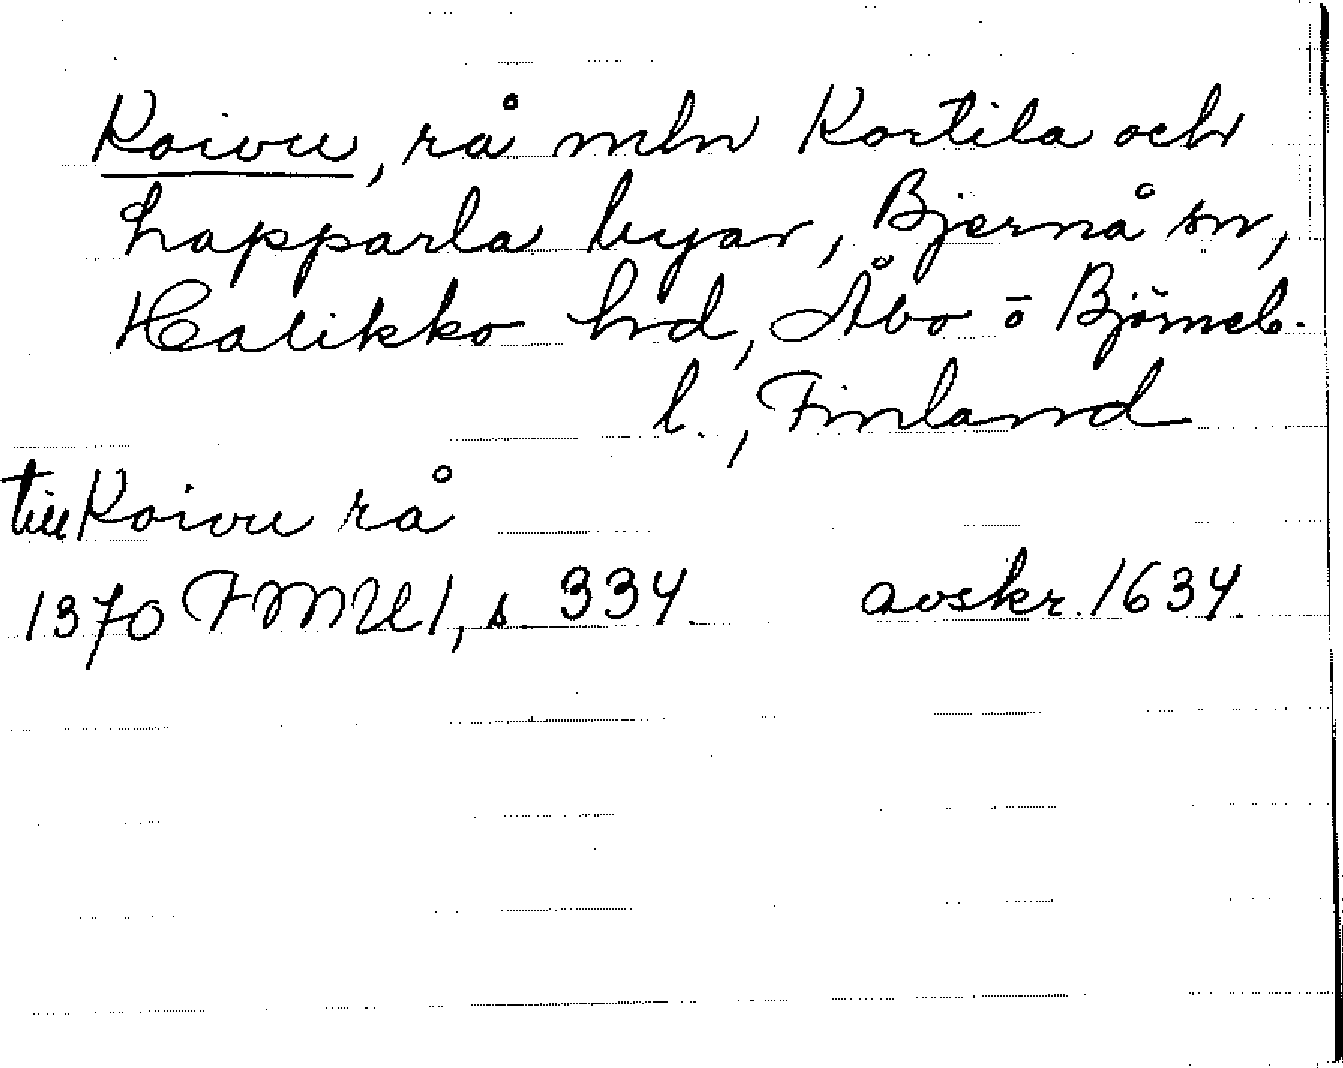 Koivu, rå mln Kortila och
Lapparla byar, Bjernå sn,
Halikko hd, Åbo o Björneb.
l., Finland
till Koivu rå
1370 FMU 1, s 334 avskr. 1634.